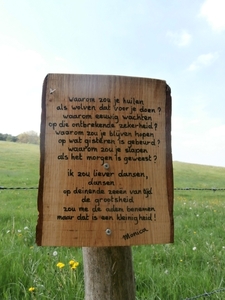 waarom zou je huilen
als wolven dat voor je doen?
waarom eeuwig wachten
op die ontbrekende zekerheid?
waarom zou je blijven hopen
op wat gisteren is gebeurd?
waarom zou je slapen
als het morgen is geweest?
ik zou liever dansen,
dansen
op deinende zeeën van tijd
de grootsheid
zou me de adem benemen
maar dat is een kleinigheid!
Monica